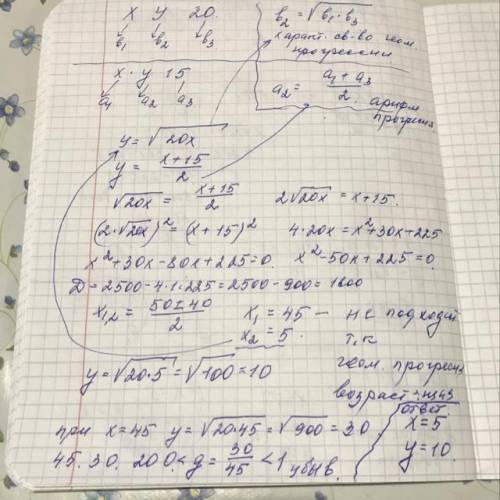 x y 20.
b₁ b₂ b₃
b₂ = √b₁·b₃
характ. св-во геом.
прогрессии
x · y 15
a₁ a₂ a₃
a₂ = (a₁ + a₃)/2. арифм
прогрессия
y = √20x
y = (x+15)/2
√20x = (x+15)/2 2√20x = x+15.
(2·√20x)² = (x+15)² 4·20x = x²+30x+225
x²+30x-80x+225=0. x²-50x+225=0.
D=2500-4·1·225=2500-900=1600
x₁,₂ = (50±40)/2 x₁ = 45 — не подходит
x₂ = 5. т.к
геом. прогрессия
y=√20·5=√100=10
возраст
ответ.
x=5
y=10.
при x=45 y=√20·45=√900=30
45. 30. 20 0<g=30/45<1 убыв.